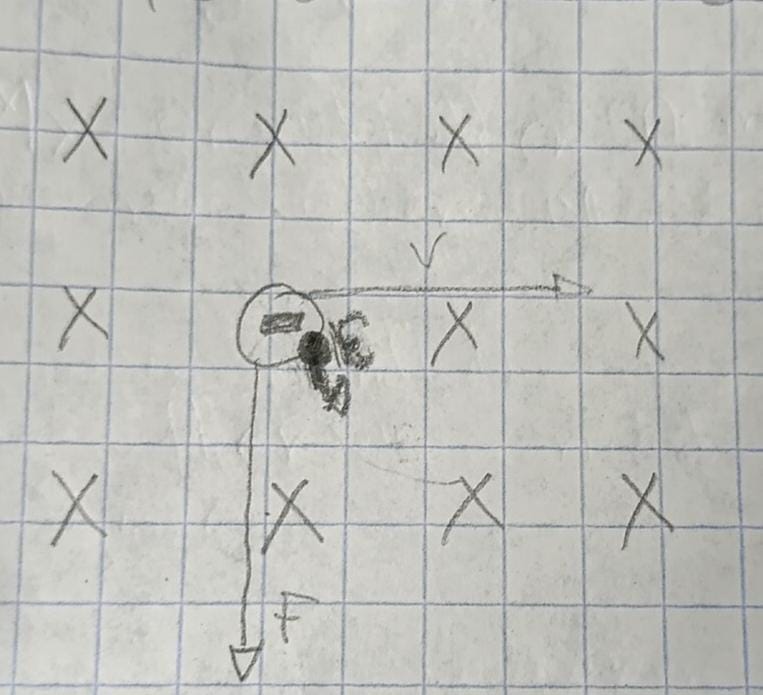 X X X X
V
X − X X
X X X X
F